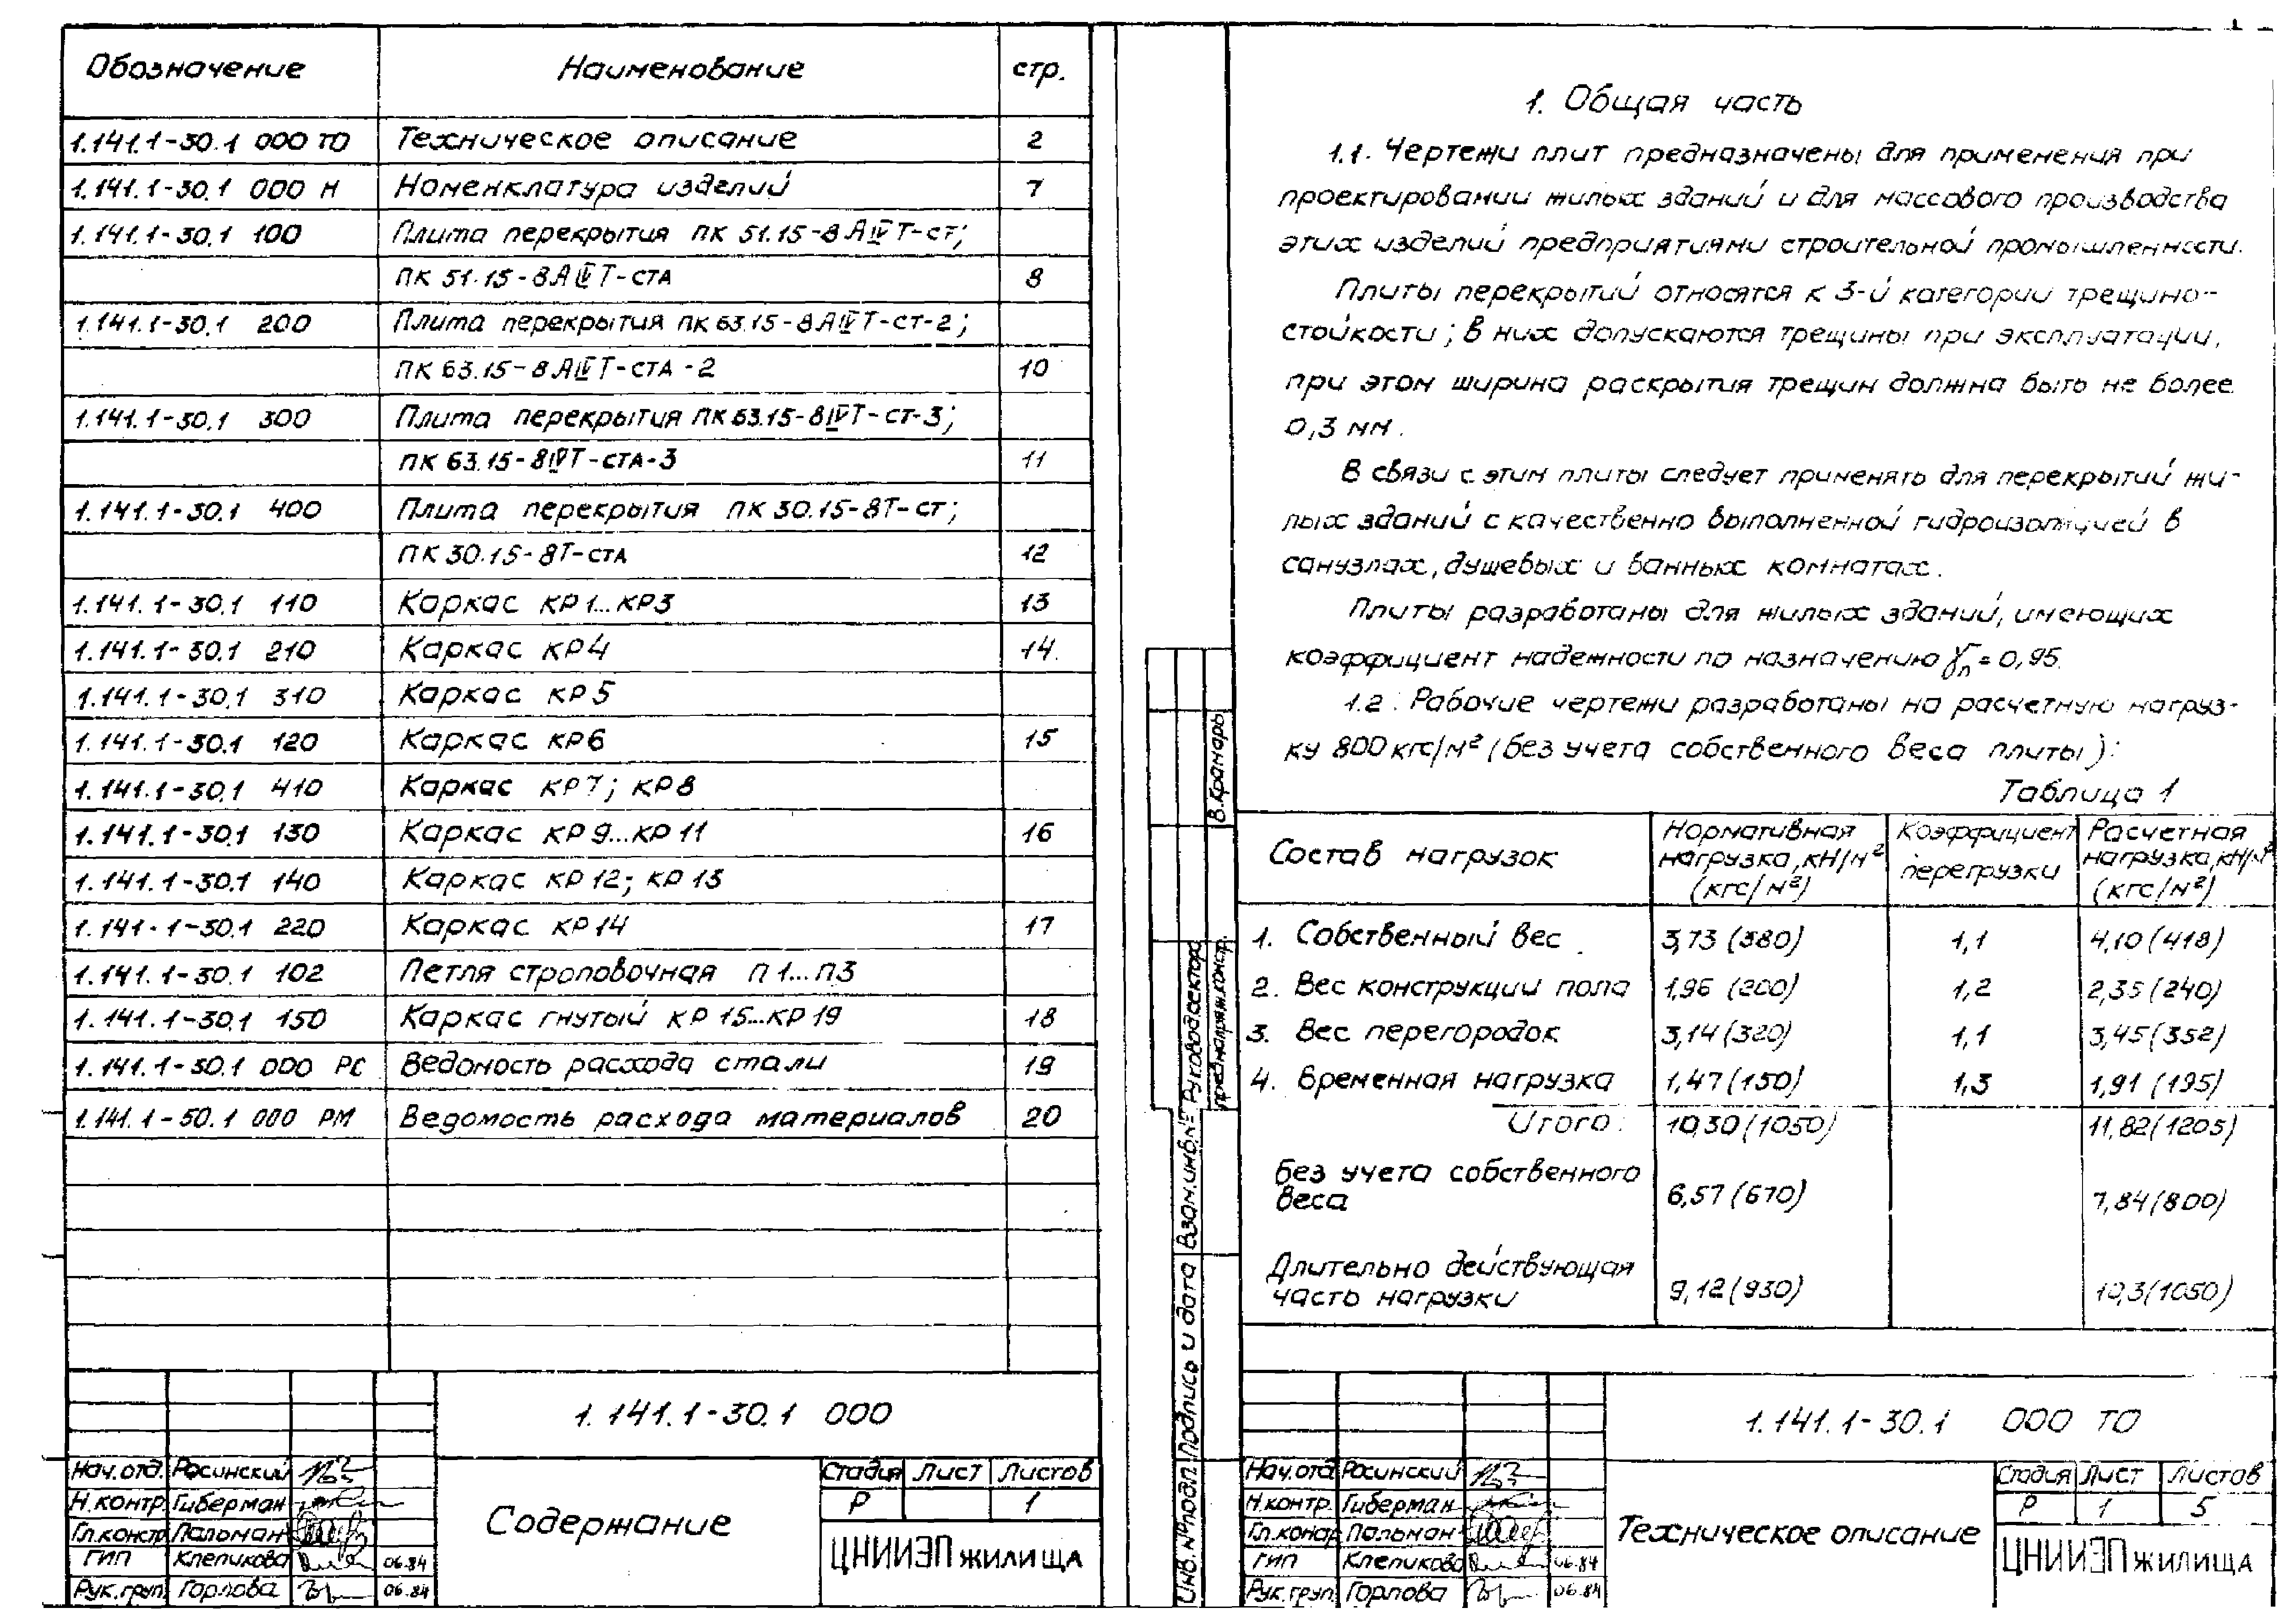 Обозначение Наименование стр.
1.141.1-30.1 000 ТО Техническое описание 2
1.141.1-30.1 000 Н Номенклатура изделий 7
1.141.1-30.1 100 Плита перекрытия ПК 51.15-8АIVТ-ст;
ПК 51.15-8АIVТ-стА 8
1.141.1-30.1 200 Плита перекрытия ПК 63.15-8АIVТ-ст-2;
ПК 63.15-8АIVТ-стА-2 10
1.141.1-30.1 300 Плита перекрытия ПК 63.15-8IVТ-ст-3;
ПК 63.15-8IVТ-стА-3 11
1.141.1-30.1 400 Плита перекрытия ПК 30.15-8Т-ст;
ПК 30.15-8Т-стА 12
1.141.1-30.1 110 Каркас КР1...КР3 13
1.141.1-30.1 210 Каркас КР4 14
1.141.1-30.1 310 Каркас КР5
1.141.1-30.1 120 Каркас КР6 15
1.141.1-30.1 410 Каркас КР7; КР8
1.141.1-30.1 130 Каркас КР9...КР11 16
1.141.1-30.1 140 Каркас КР12; КР13
1.141.1-30.1 220 Каркас КР14 17
1.141.1-30.1 102 Петля строповочная П1...П3
1.141.1-30.1 150 Каркас гнутый КР15...КР19 18
1.141.1-30.1 000 РС Ведомость расхода стали 19
1.141.1-30.1 000 РМ Ведомость расхода материалов 20
1.141.1-30.1 000
Нач.отд. Росинский
Н.контр. Гиберман
Гл.констр Пальман
ГИП Клепикова 06.84
Рук.груп. Горлова 06.84
Содержание
Стадия Лист Листов
Р 1
ЦНИИЭП жилища
В.Крамарь
Руковод.сектор
преднапряж.констр.
Взам.инв.№
Подпись и дата
Инв.№подл.
1. Общая часть
1.1. Чертежи плит предназначены для применения при
проектировании жилых зданий и для массового производства
этих изделий предприятиями строительной промышленности.
Плиты перекрытий относятся к 3-й категории трещино-
стойкости; в них допускаются трещины при эксплуатации,
при этом ширина раскрытия трещин должна быть не более
0,3 мм.
В связи с этим плиты следует применять для перекрытий жи-
лых зданий с качественно выполненной гидроизоляцией в
санузлах, душевых и ванных комнатах.
Плиты разработаны для жилых зданий, имеющих
коэффициент надежности по назначению γn = 0,95.
1.2. Рабочие чертежи разработаны на расчетную нагруз-
ку 800 кгс/м² (без учета собственного веса плиты):
Таблица 1
Состав нагрузок Нормативная нагрузка, кН/м² (кгс/м²) Коэффициент перегрузки Расчетная нагрузка, кН/м² (кгс/м²)
1. Собственный вес 3,73 (380) 1,1 4,10 (418)
2. Вес конструкции пола 1,96 (200) 1,2 2,35 (240)
3. Вес перегородок 3,14 (320) 1,1 3,45 (352)
4. Временная нагрузка 1,47 (150) 1,3 1,91 (195)
Итого: 10,30 (1050) 11,82 (1205)
Без учета собственного
веса 6,57 (670) 7,84 (800)
Длительно действующая
часть нагрузки 9,12 (930) 10,3 (1050)
1.141.1-30.1 000 ТО
Нач.отд Росинский
Н.контр. Гиберман
Гл.констр Пальман
ГИП Клепикова 06.84
Рук.груп. Горлова 06.84
Техническое описание
Стадия Лист Листов
Р 1 5
ЦНИИЭП жилища